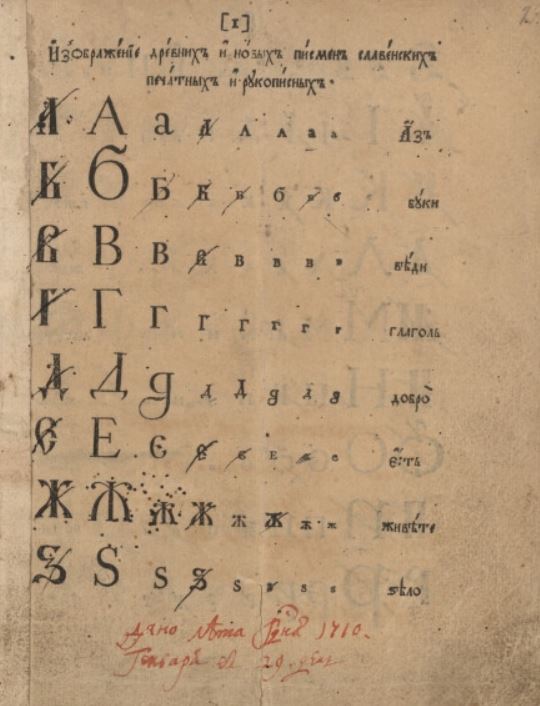 [1]
И҆з̾ѡбраже́нїе дре́внихъ и҆ но́выхъ пи́сменъ славе́нскихъ
печа́тныхъ и҆ рꙋкопи́сныхъ.
А А а А А А а а А҆́зъ
Б Б Б Б Б б Б Б бꙋ́ки
В В В В В В В В вѣ́ди
Г Г Г Г Г Г Г Г глаго́ль
Д Д д Д Д д Д д добро̀
Є Е є Є Є Е Є є є҆́сть
Ж Ж Ж Ж Ж Ж Ж Ж живѣ́те
Ѕ Ѕ Ѕ Ѕ Ѕ Ѕ Ѕ Ѕ ѕѣлѡ̀
Дано лѣта Гдн҃ѧ 1710.
Генваря въ 29. день